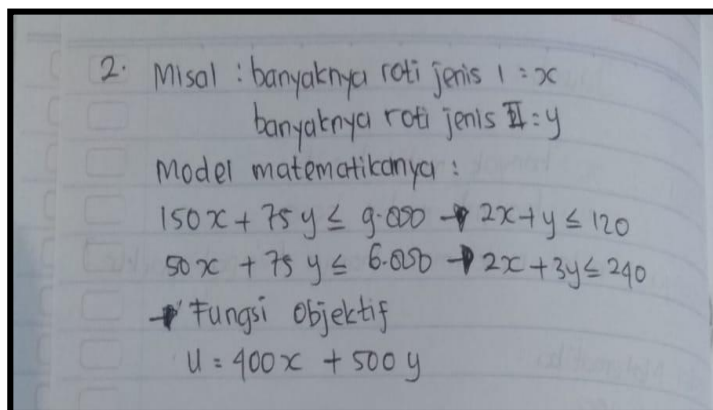 2. Misal : banyaknya roti jenis I = x
banyaknya roti jenis II = y
Model matematikanya :
150x + 75y ≤ 9.000 → 2x + y ≤ 120
50x + 75y ≤ 6.000 → 2x + 3y ≤ 240
→ Fungsi objektif
U = 400x + 500y